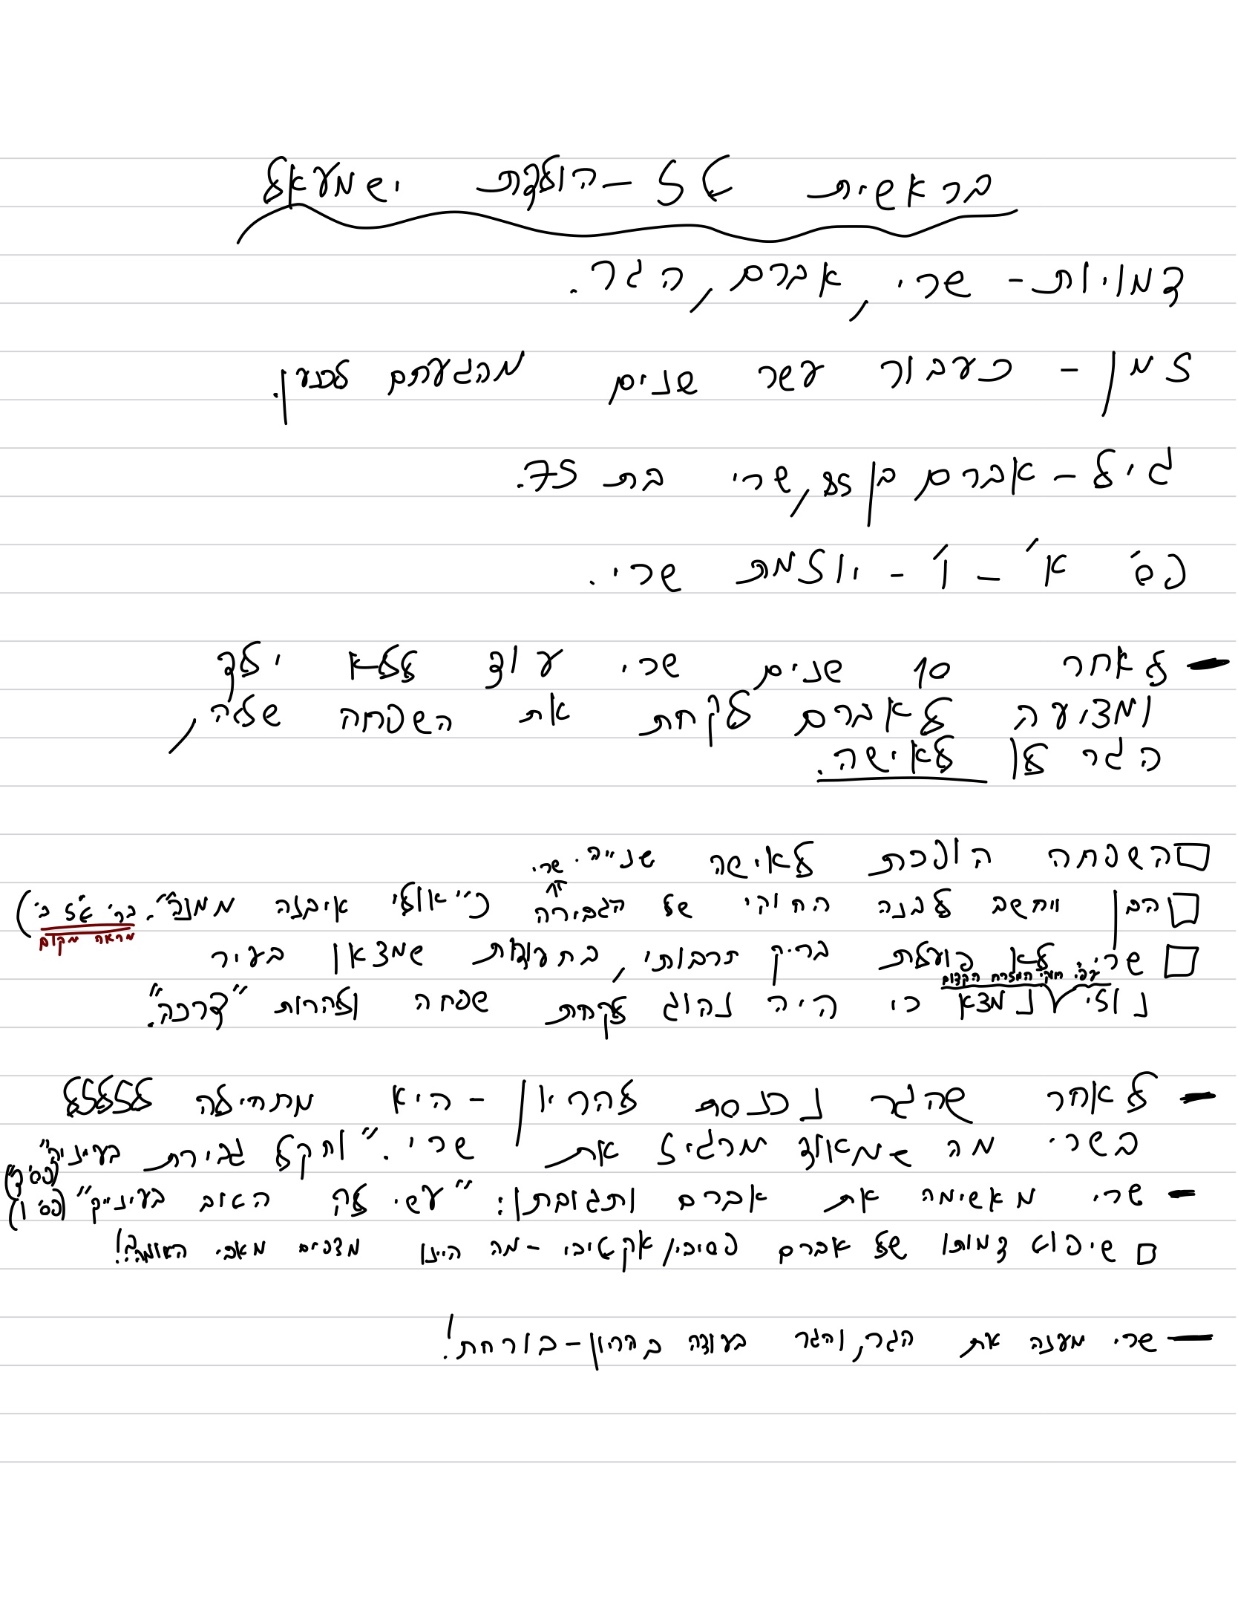 בראשית טז - הולדת ישמעאל
דמויות - שרי, אברם, הגר.
זמן - כעבור עשר שנים מהגעתם לכנען.
גיל - אברם בן 85, שרי בת 75.
פס' א' - ו' - יוזמת שרי.
- לאחר 10 שנים שרי עוד ללא ילד
ומציעה לאברם לקחת את השפחה שלה,
הגר לו לאישה.
□ השפחה הופכת לאישה שנייה.
שרי
□ הבן ייחשב לבנה החוקי של הגבירה כ"אולי איבנה ממנה". בר' טז ב')
מראה מקום
□ שרי לא פועלת בריק תרבותי, בתעודות שמצאו בעיר
עפ"י חוקי המזרח הקדום
נוזי נמצא כי היה נהוג לקחת שפחה ולהרות "דרכה".
- לאחר שהגר נכנסת להריון - היא מתחילה לזלזל
בשרי מה שמאוד מרגיז את שרי. "ותקל גבירת בעיניה"
(פס' ד')
- שרי מאשימה את אברם ותגובתו: "עשי לה הטוב בעינייך" (פס' ו)
□ שיפוט דמותו של אברם פסיבי/אקטיבי - מה היינו מצפים מאבי האומה?!
- שרי מענה את הגר, והגר בעודה בהריון - בורחת!